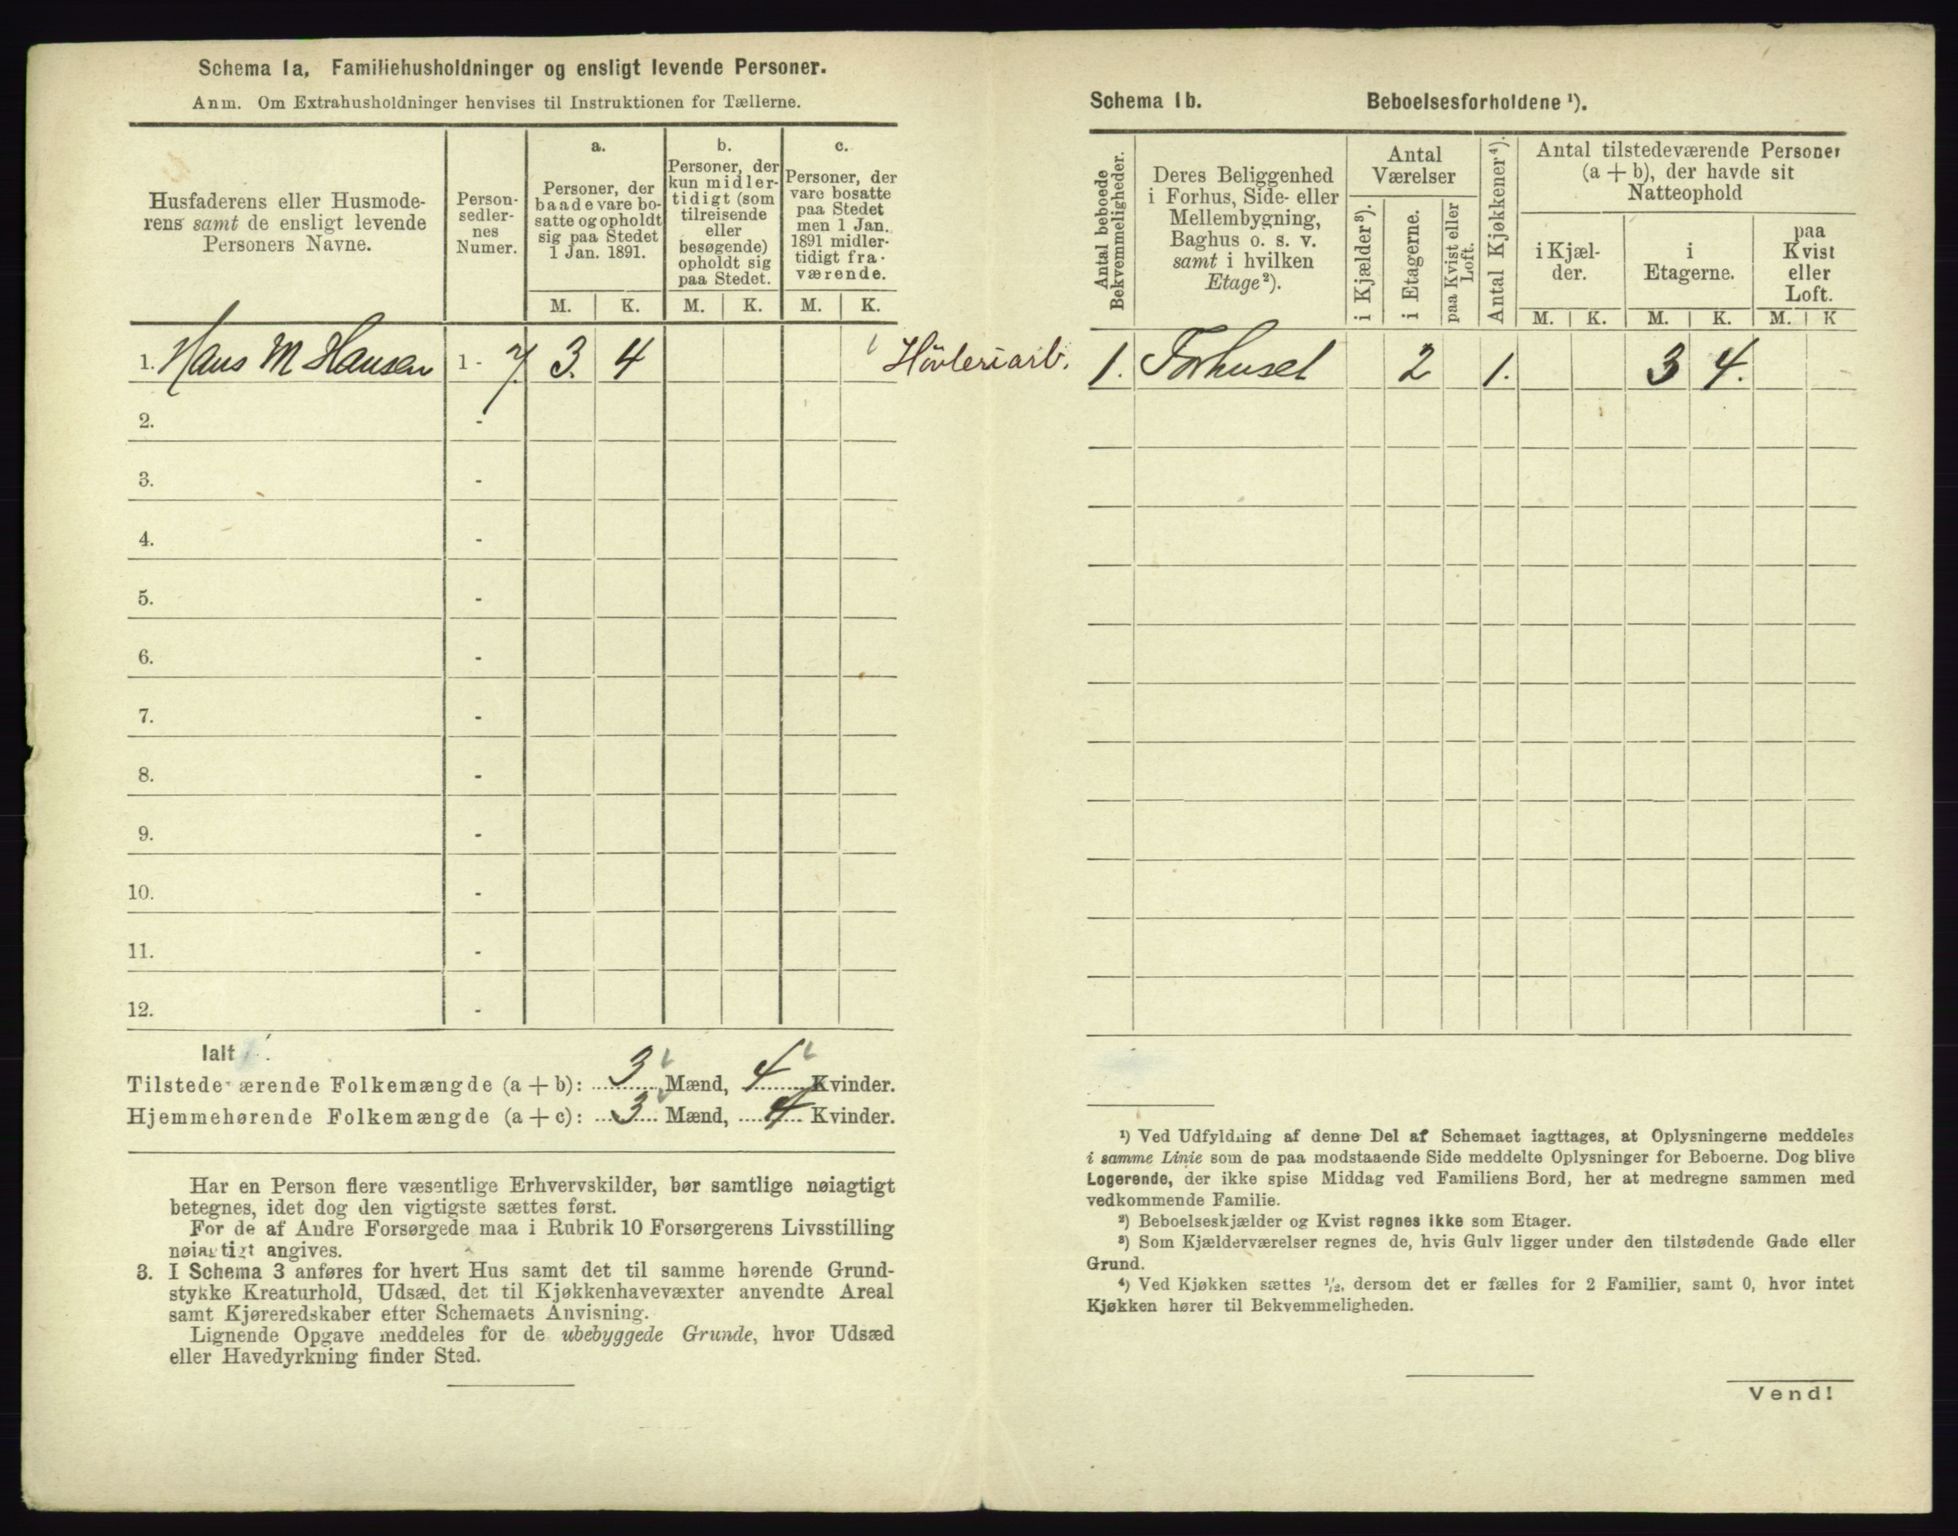 Schema 1a, Familiehusholdninger og ensligt levende Personer.
Anm. Om Extrahusholdninger henvises til Instruktionen for Tællerne.
Husfaderens eller Husmode-
rens samt de ensligt levende
Personers Navne.
Person-
sedler-
nes
Numer.
a.
Personer, der
baade vare bo-
satte og opholdt
sig paa Stedet
1 Jan. 1891.
b.
Personer, der
kun midler-
tidigt (som
tilreisende
eller
besøgende)
opholdt sig
paa Stedet.
c.
Personer, der
vare bosatte
paa Stedet
men 1 Jan.
1891 midler-
tidigt fra-
værende.
M. K. M. K. M. K.
1. Hans M Hansen 1 - 7. 3. 4 Hövleriarb.
2. -
3. -
4. -
5. -
6. -
7. -
8. -
9. -
10. -
11. -
12. -
Ialt
Tilstedeværende Folkemængde (a + b): 3 Mænd, 4 Kvinder.
Hjemmehørende Folkemængde (a + c): 3 Mænd, 4 Kvinder.
Har en Person flere væsentlige Erhvervskilder, bør samtlige nøiagtigt
betegnes, idet dog den vigtigste sættes først.
For de af Andre Forsørgede maa i Rubrik 10 Forsørgerens Livsstilling
nøiagtigt angives.
3. I Schema 3 anføres for hvert Hus samt det til samme hørende Grund-
stykke Kreaturhold, Udsæd, det til Kjøkkenhavevæxter anvendte Areal
samt Kjøreredskaber efter Schemaets Anvisning.
Lignende Opgave meddeles for de ubebyggede Grunde, hvor Udsæd
eller Havedyrkning finder Sted.
Schema 1b. Beboelsesforholdene ¹).
Antal beboede
Bekvemmeligheder.
Deres Beliggenhed
i Forhus, Side- eller
Mellembygning,
Baghus o. s. v.
samt i hvilken
Etage²).
Antal
Værelser
i Kjælder³).
i Etagerne.
paa Kvist eller
Loft.
Antal Kjøkkener⁴).
Antal tilstedeværende Personer
(a + b), der havde sit
Natteophold
i Kjæl-
der.
i
Etagerne.
paa
Kvist
eller
Loft.
M. K. M. K. M. K
1. Forhuset 2 1. 3 4.
¹) Ved Udfyldning af denne Del af Schemaet iagttages, at Oplysningerne meddeles
i samme Linie som de paa modstaaende Side meddelte Oplysninger for Beboerne. Dog blive
Logerende, der ikke spise Middag ved Familiens Bord, her at medregne sammen med
vedkommende Familie.
²) Beboelseskjælder og Kvist regnes ikke som Etager.
³) Som Kjælderværelser regnes de, hvis Gulv ligger under den tilstødende Gade eller
Grund.
⁴) Ved Kjøkken sættes ½, dersom det er fælles for 2 Familier, samt 0, hvor intet
Kjøkken hører til Bekvemmeligheden.
Vend!